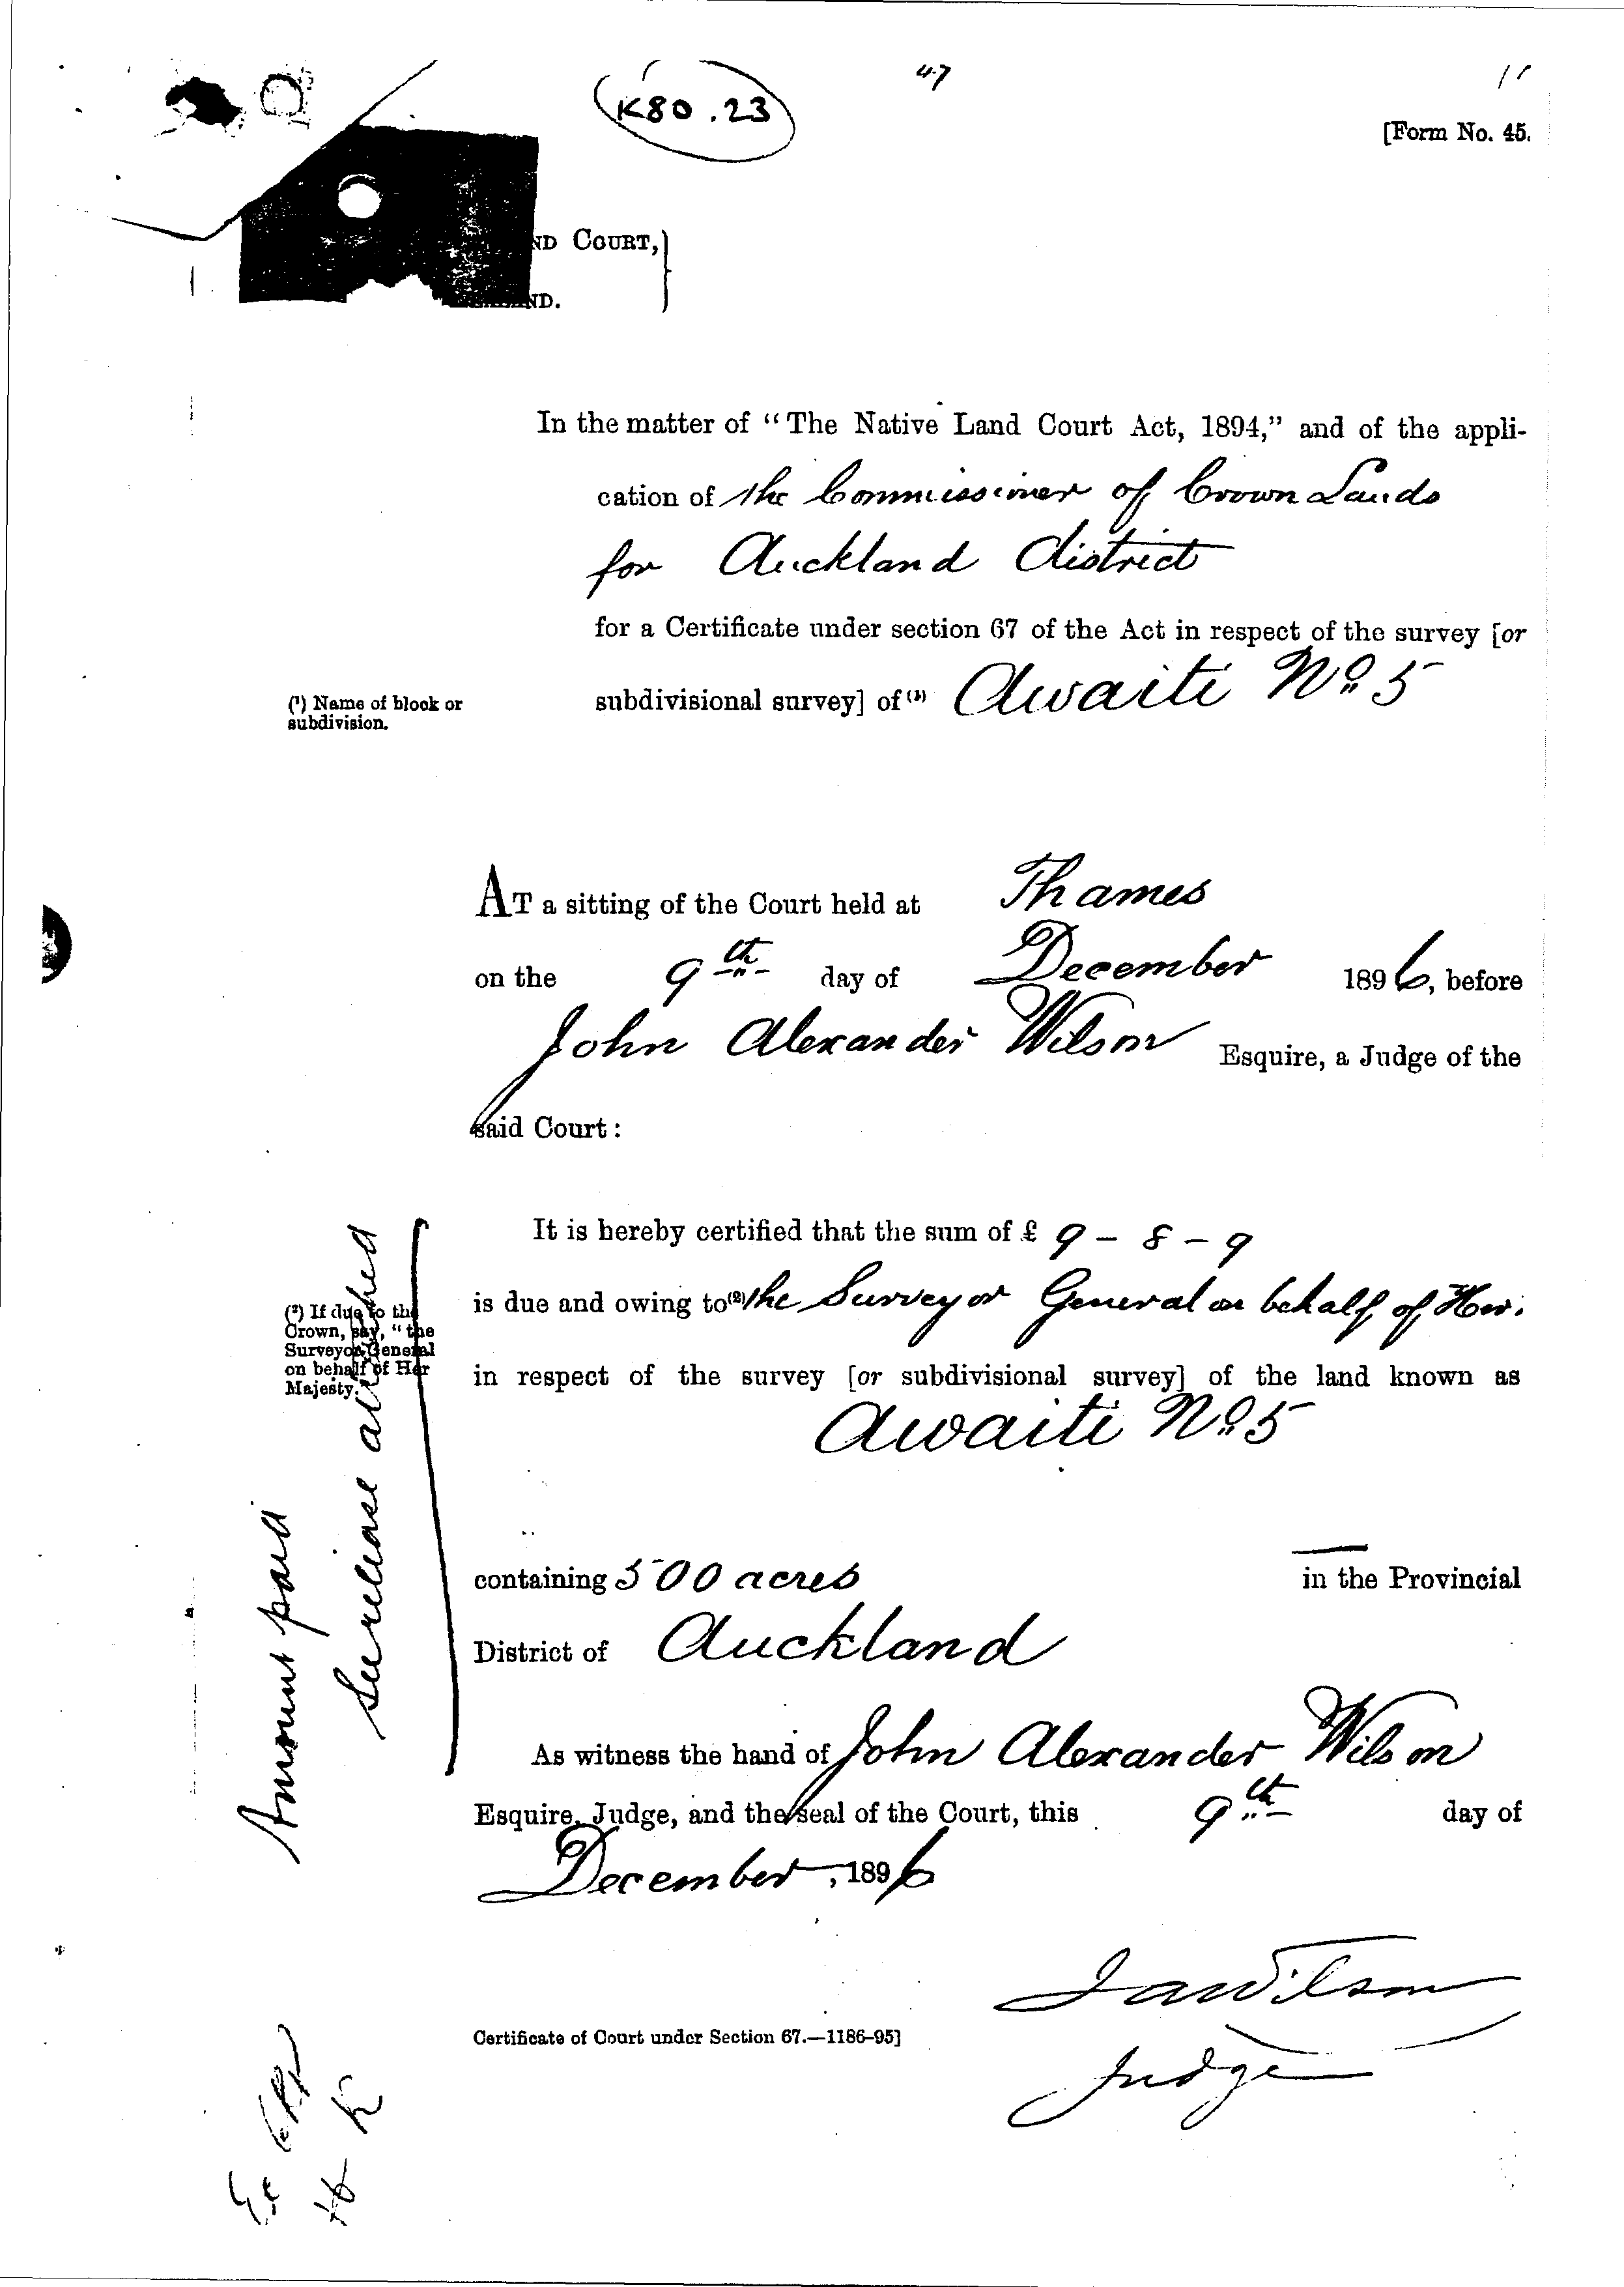 K80.23
47
11
[Form No. 45.
ND COURT,
ND.
In the matter of “The Native Land Court Act, 1894,” and of the appli-
cation of the Commissioner of Crown Lands
for Auckland District
for a Certificate under section 67 of the Act in respect of the survey [or
(¹) Name of block or
subdivision.
subdivisional survey] of (¹) Awaiti No. 5
AT a sitting of the Court held at Thames
on the 9th day of December 1896, before
John Alexander Wilson Esquire, a Judge of the
said Court:
It is hereby certified that the sum of £ 9 - 8 - 9
is due and owing to (²) the Surveyor General on behalf of Her.
(²) If due to the
Crown, say, “the
Surveyor General
on behalf of Her
Majesty.”
in respect of the survey [or subdivisional survey] of the land known as
Awaiti No. 5
containing 500 acres in the Provincial
District of Auckland
As witness the hand of John Alexander Wilson
Esquire, Judge, and the seal of the Court, this 9th day of
December, 1896
J A Wilson
Judge
Certificate of Court under Section 67.—1186-95]
Amount paid
See release attached